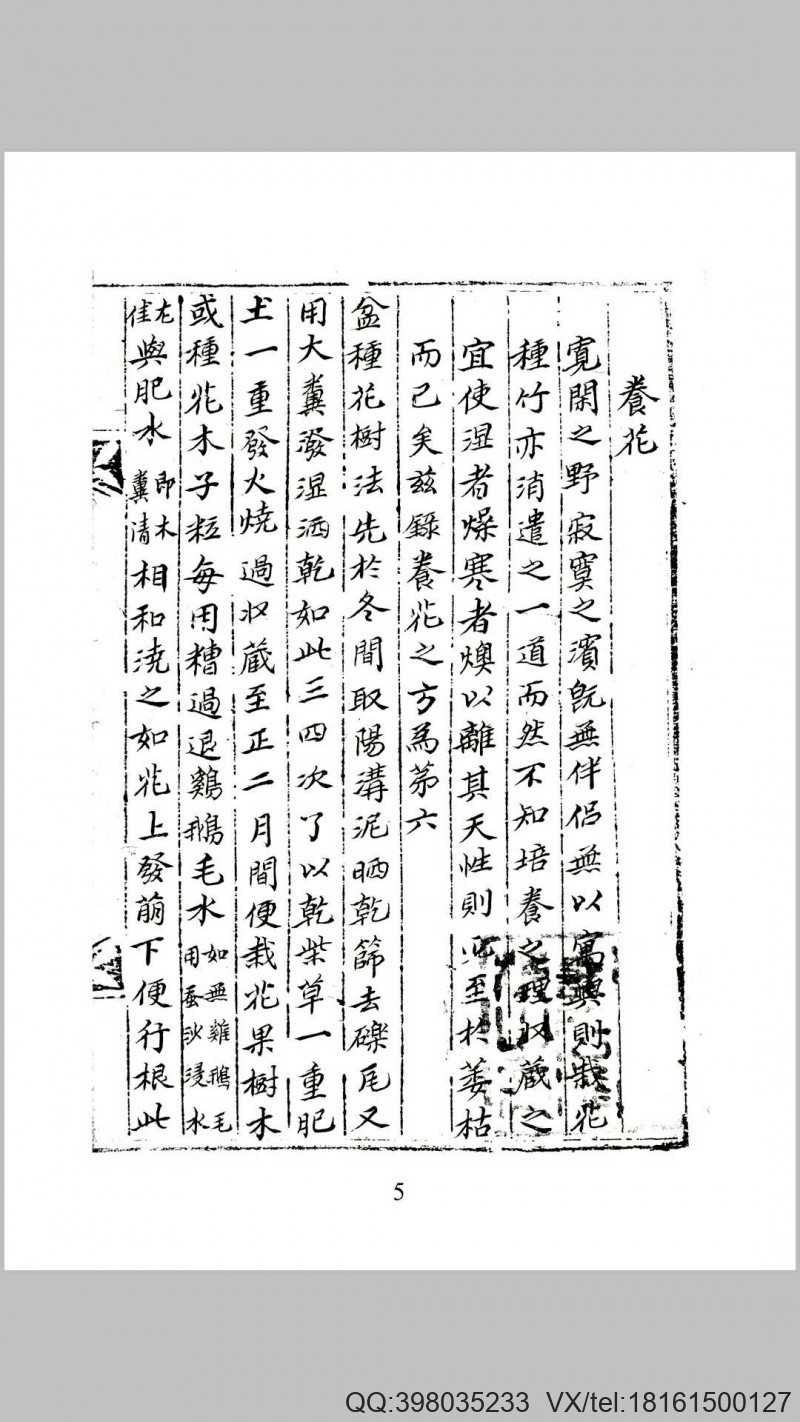 養花
寛閑之野寂寞之濱既無伴侶無以寓興則栽花
種竹亦消遣之一道而然不知培養之理収藏之
宜使湿者燥寒者燠以離其天性則必至於萎枯
而已矣兹録養花之方為苐六
盆種花樹法先於冬間取陽溝泥晒乾篩去礫瓦又
用大糞潑湿洒乾如此三四次了以乾柴草一重肥
土一重發火燒過収藏至正二月間便栽花果樹木
或種花木子粒每用糟過退鷄鵝毛水如無雞鵝毛用蚕沙浸水
尤佳與肥水即木糞清相和澆之如花上發萠下便行根此
5
QQ:398035233 VX/tel:18161500127